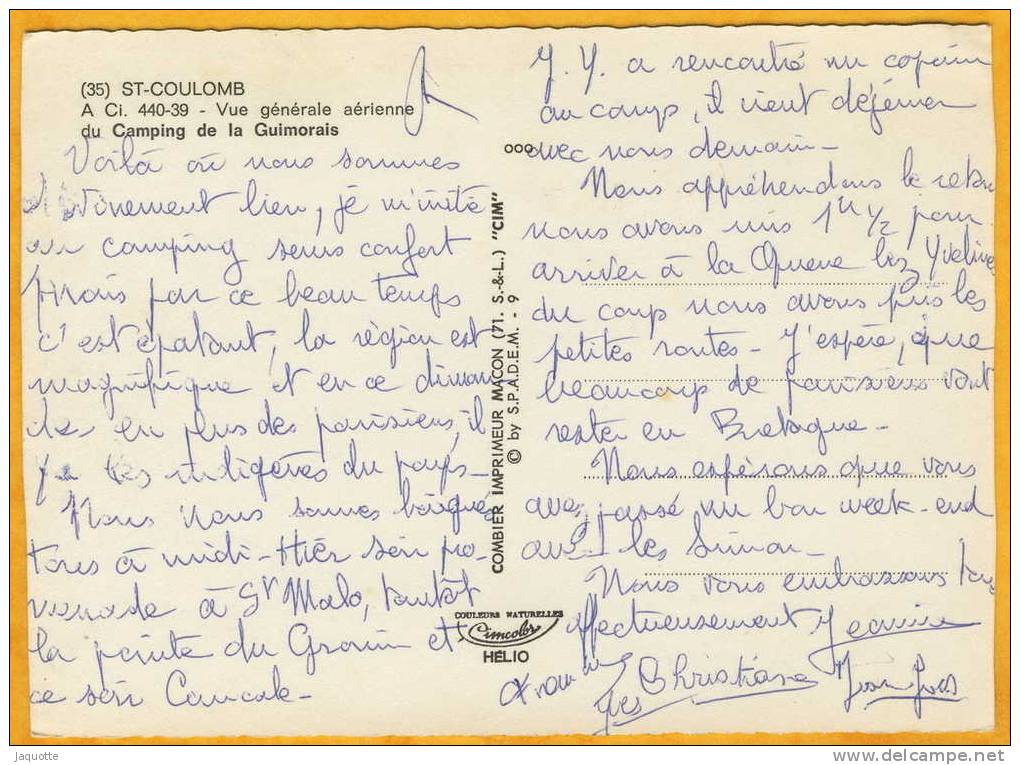 (35) ST-COULOMB
A Ci. 440-39 - Vue générale aérienne
du Camping de la Guimorais
Voilà où nous sommes
divinement bien, je m'initie
au camping sans confort
mais par ce beau temps
c'est épatant, la région est
magnifique et en ce diman
che en plus des parisiens, il
y a les indigènes du pays -
Nous nous sommes baignés
tous à midi - Hier soir pro-
menade à St Malo, tantôt
la pointe du Grouin et
ce soir Cancale -
COMBIER IMPRIMEUR MACON (71. S.-&-L.) "CIM"
© by S.P.A.D.E.M. - 9
COULEURS NATURELLES
Cimcolor
HELIO
J. Y. a rencontré un copain
au camp, il vient déjeuner
avec nous demain -
Nous appréhendons le retour
nous avons mis 1h 1/2 pour
arriver à la Queue lez Yvelines
du coup nous avons pris les
petites routes - J'espère, que
beaucoup de parisiens vont
rester en Bretagne -
Nous espérons que vous
avez passé un bon week-end
avec les Simon -
Nous vous embrassons tous
affectueusement Jeannine
Yves Christiane Jean Yves
jaquotte
www.delcampe.net